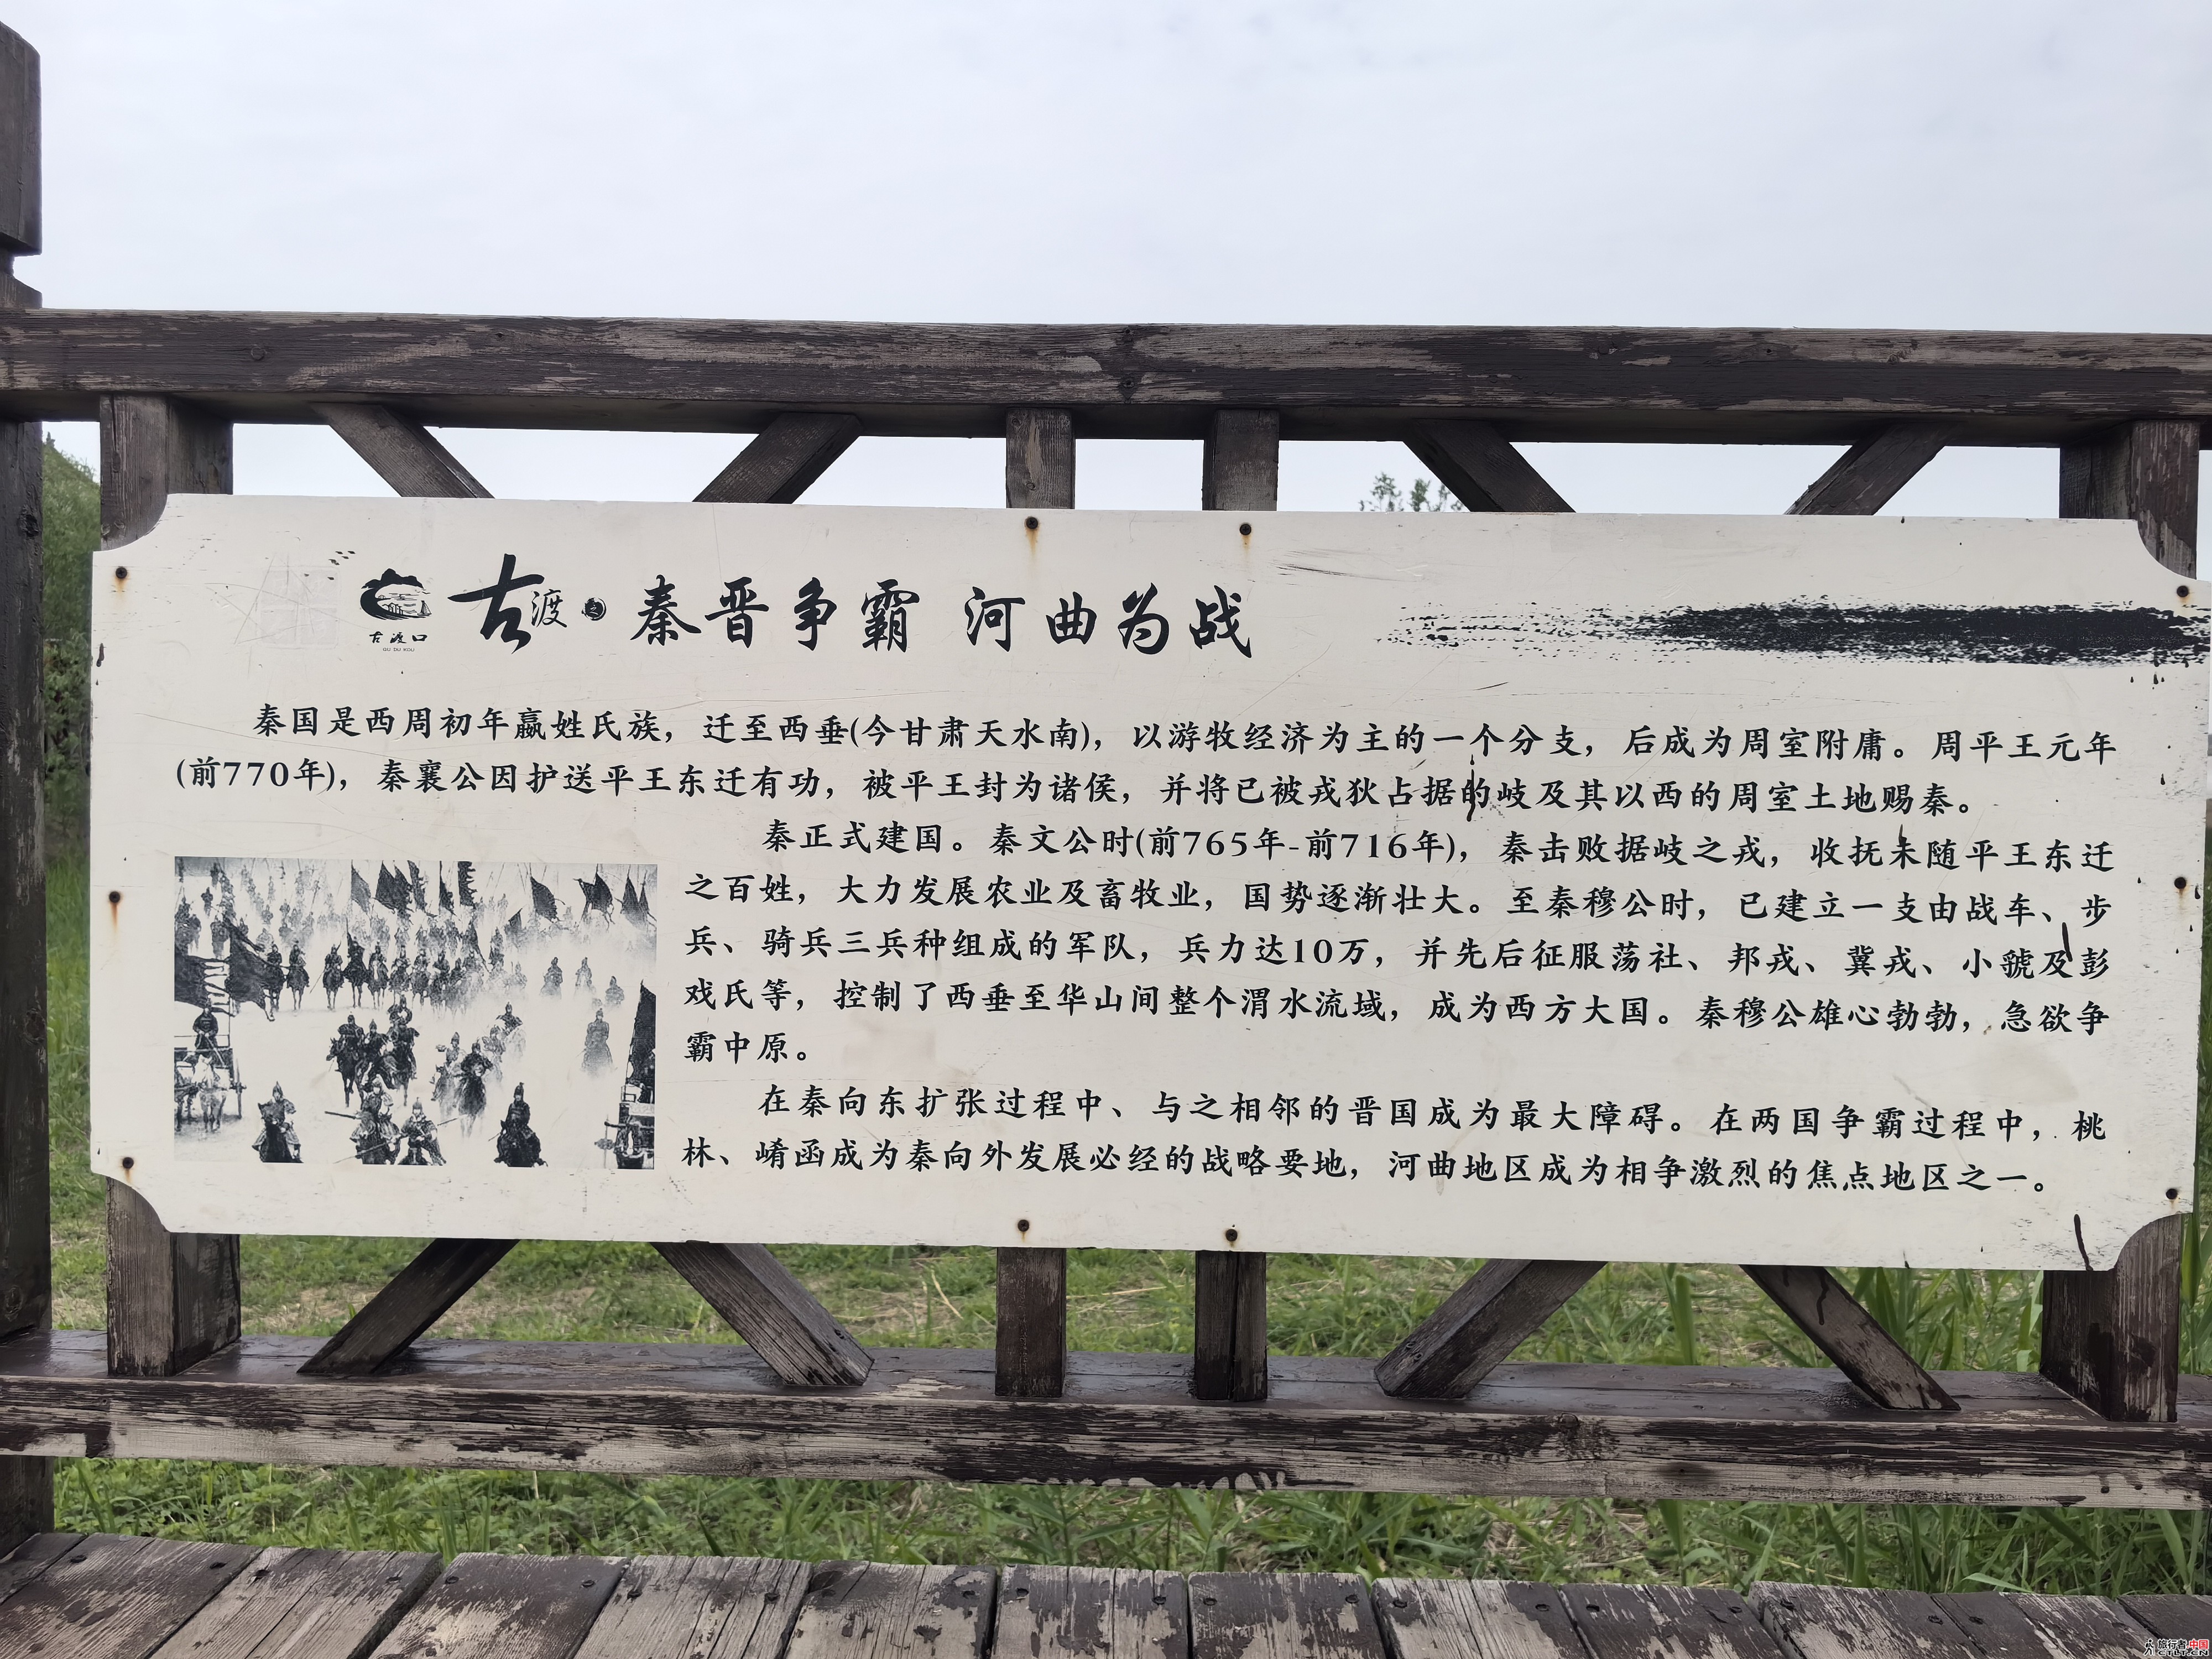 古渡口
GU DU KOU
古渡之 秦晋争霸 河曲为战
秦国是西周初年嬴姓氏族，迁至西垂(今甘肃天水南)，以游牧经济为主的一个分支，后成为周室附庸。周平王元年
(前770年)，秦襄公因护送平王东迁有功，被平王封为诸侯，并将已被戎狄占据的岐及其以西的周室土地赐秦。
秦正式建国。秦文公时(前765年-前716年)，秦击败据岐之戎，收抚未随平王东迁
之百姓，大力发展农业及畜牧业，国势逐渐壮大。至秦穆公时，已建立一支由战车、步
兵、骑兵三兵种组成的军队，兵力达10万，并先后征服荡社、邦戎、冀戎、小虢及彭
戏氏等，控制了西垂至华山间整个渭水流域，成为西方大国。秦穆公雄心勃勃，急欲争
霸中原。
在秦向东扩张过程中、与之相邻的晋国成为最大障碍。在两国争霸过程中，桃
林、崤函成为秦向外发展必经的战略要地，河曲地区成为相争激烈的焦点地区之一。
旅行者.中国
CTLT.CN